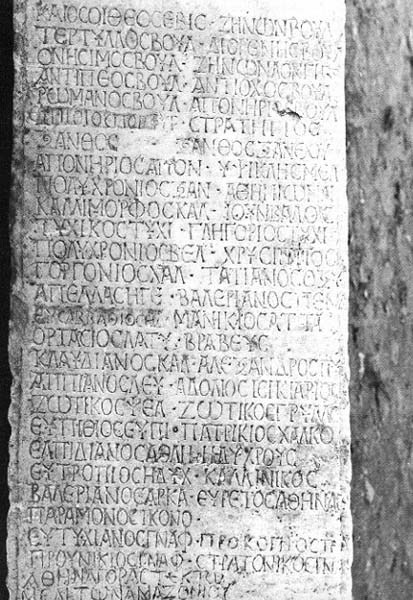 ΚΑΙΟϹΟΙΘΕΟϹΕΒΙϹ · ΖΗΝΩΝΒΟΥΛ
ΤΕΡΤΥΛΛΟϹΒΟΥΛ · ΔΙΟΓΕΝΗϹΒΟΥΛ
ΟΝΗϹΙΜΟϹΒΟΥΛ · ΖΗΝΩΝΛΟΝΓΙ
ΑΝΤΙΠΕΟϹΒΟΥΛ · ΑΝΤΙΟΧΟϹΒΟΥΛ
ΡΩΜΑΝΟϹΒΟΥΛ · ΑΠΟΝΗΡΙΟϹΒΟΥΛ
ϹΤΡΑΤΗΓΙΟϹ
ΞΑΝΘΟϹ ΞΑΝΘΟϹΞΑΝΘΙΟΥ
ΑΠΟΝΗΡΙΟϹΑΠΟΝ · ΥΨΙΚΛΗϹΜΕΛ
ΠΟΛΥΧΡΟΝΙΟϹΞΑΝ · ΑΘΗΝΙΩΝΑΙ
ΚΑΛΛΙΜΟΡΦΟϹΚΑΛ · ΙΟΥΝΒΑΛΟϹ
ΤΥΧΙΚΟϹΤΥΧΙ · ΓΛΗΓΟΡΙΟϹΤΥΧΙ
ΠΟΛΥΧΡΟΝΙΟϹΒΕΛ · ΧΡΥϹΙΠΠΟϹ
ΓΟΡΓΟΝΙΟϹΧΑΛ · ΤΑΤΙΑΝΟϹΟΞΥ
ΑΠΕΛΛΑϹΗΓΕ · ΒΑΛΕΡΙΑΝΟϹΠΕΝ
ΕΥϹΑΒΒΑΘΙΟϹΗΔ · ΜΑΝΙΚΙΟϹΑΤΤΑ
ΟΡΤΑϹΙΟϹΛΑΤΥ · ΒΡΑΒΕΥϹ
ΚΛΑΥΔΙΑΝΟϹΚΑΛ · ΑΛΕΞΑΝΔΡΟϹΠΥ
ΑΠΠΙΑΝΟϹΛΕΥ · ΑΔΟΛΙΟϹΙϹΙΚΙΑΡΙΟϹ
ΖΩΤΙΚΟϹΨΕΛ · ΖΩΤΙΚΟϹΓΡΥΛΛ
ΕΥΠΙΘΙΟϹΕΥΠΙ · ΠΑΤΡΙΚΙΟϹΧΑΛΚΟ
ΕΛΠΙΔΙΑΝΟϹΑΘΛΗ · ΗΔΥΧΡΟΥϹ
ΕΥΤΡΟΠΙΟϹΗΔΥΧ · ΚΑΛΛΙΝΙΚΟϹ
ΒΑΛΕΡΙΑΝΟϹΑΡΚΑ · ΕΥΡΕΤΟϹΑΘΗΝΑΓ
ΠΑΡΑΜΟΝΟϹΙΚΟΝΟ ·
ΕΥΤΥΧΙΑΝΟϹΓΝΑΦ · ΠΡΟΚΟΠΙΟϹΤΡ
ΠΡΟΥΝΙΚΙΟϹΓΝΑΦ · ϹΤΡΑΤΟΝΙΚΟϹΓΝ
ΑΘΗΝΑΓΟΡΑϹΤΕΚΤΩ
ΜΕΛΙΤΩΝΑΜΑΖΟΝΙΟΥ